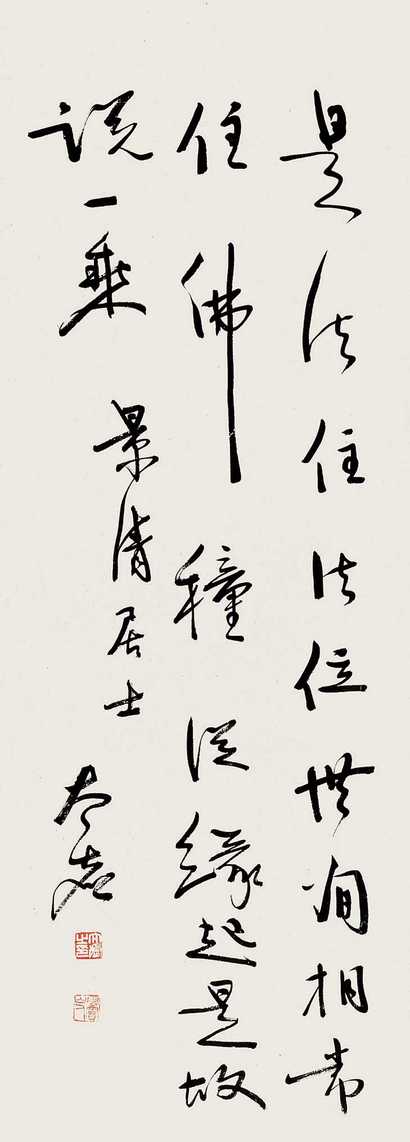 是法住法位世间相常
住佛種従缘起是故
说一乘
景清居士
太虚